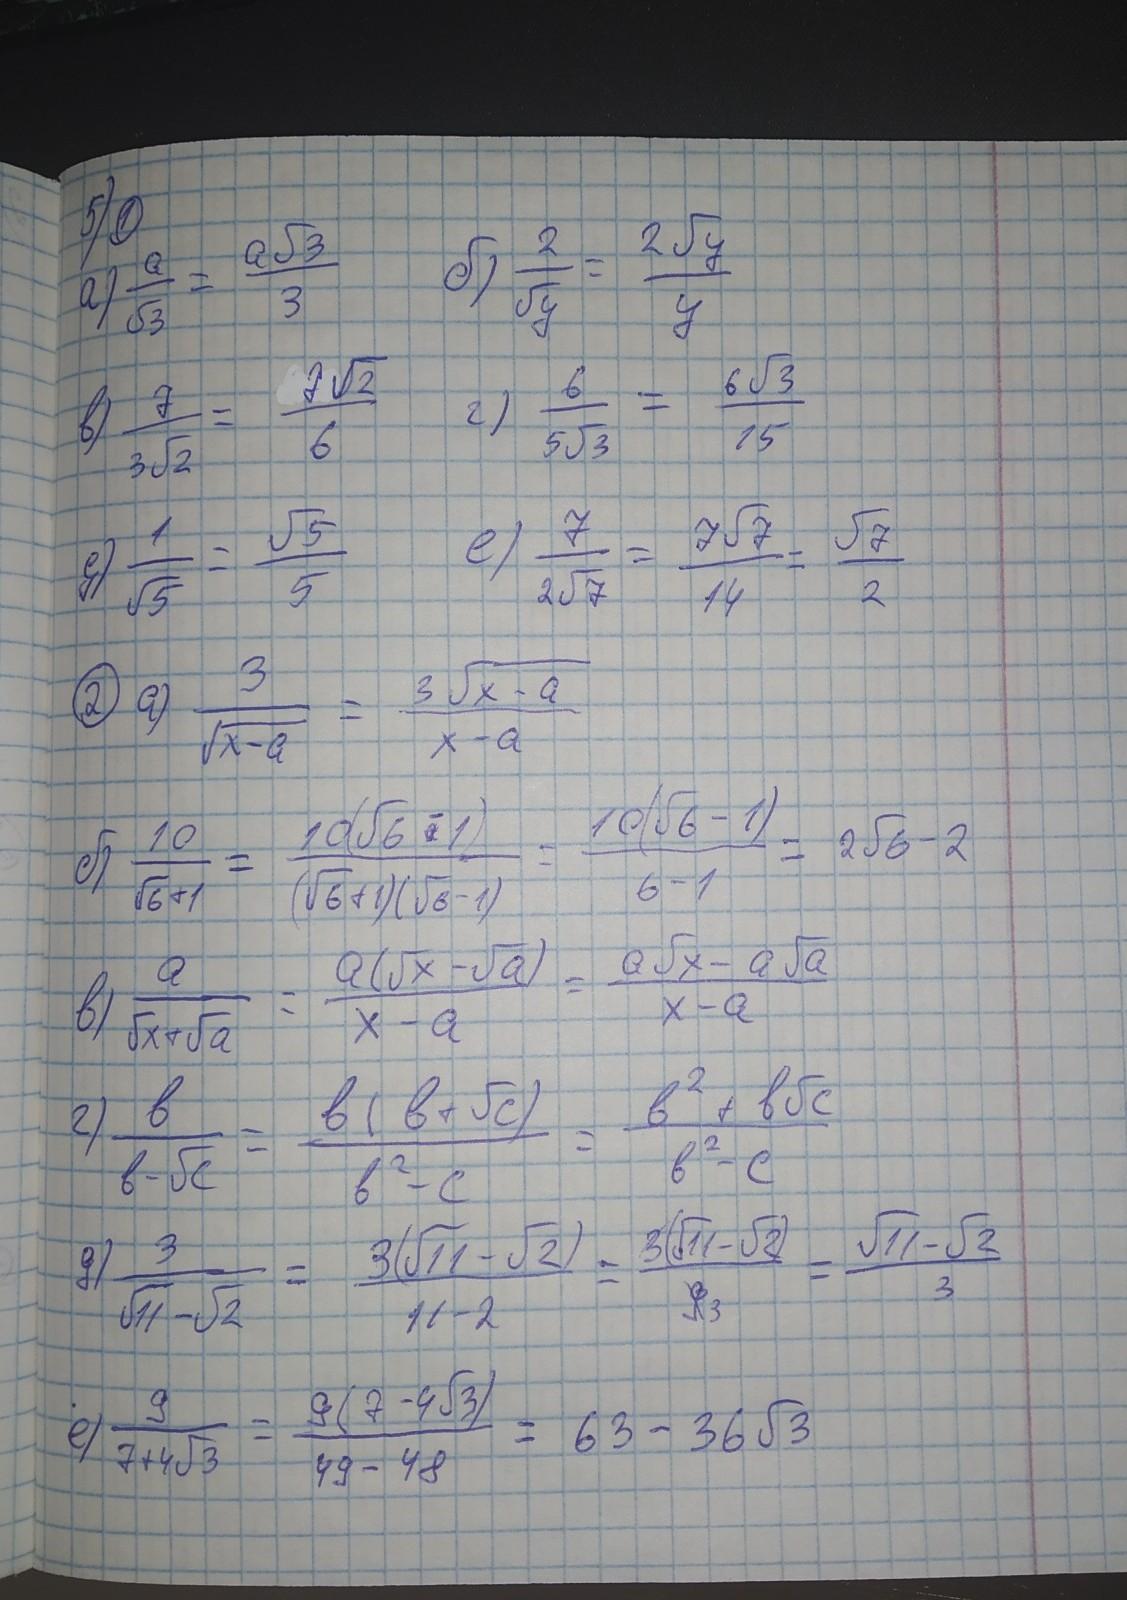 5) ①
а) a/√3 = a√3/3 б) 2/√y = 2√y/y
в) 7/3√2 = 7√2/6 г) 6/5√3 = 6√3/15
д) 1/√5 = √5/5 е) 7/2√7 = 7√7/14 = √7/2
② а) 3/√(x-a) = 3√(x-a)/(x-a)
б) 10/(√6+1) = 10(√6-1)/((√6+1)(√6-1)) = 10(√6-1)/(6-1) = 2√6-2
в) a/(√x+√a) = a(√x-√a)/(x-a) = (a√x-a√a)/(x-a)
г) в/(в-√c) = в(в+√c)/(в²-c) = (в²+в√c)/(в²-c)
д) 3/(√11-√2) = 3(√11-√2)/(11-2) = 3(√11-√2)/9 3 = (√11-√2)/3
е) 9/(7+4√3) = 9(7-4√3)/(49-48) = 63-36√3